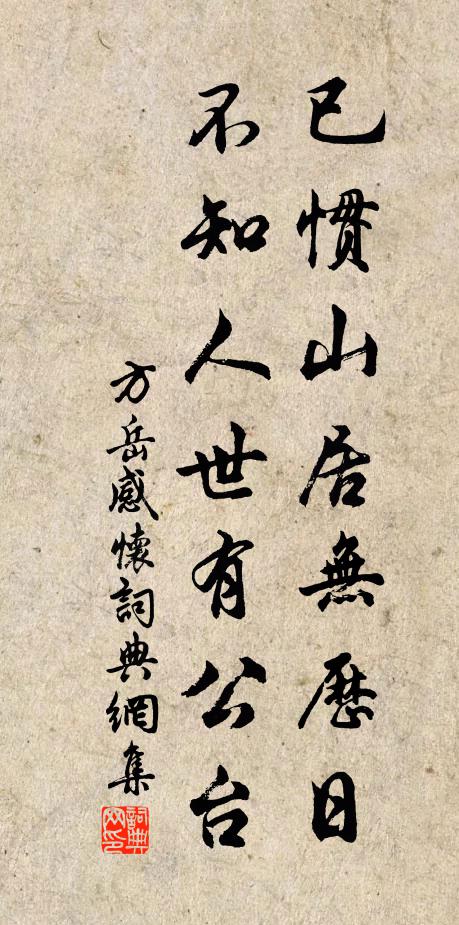 已慣山居無歷日
不知人世有公台
方岳感懷詞典網集
詞典網印